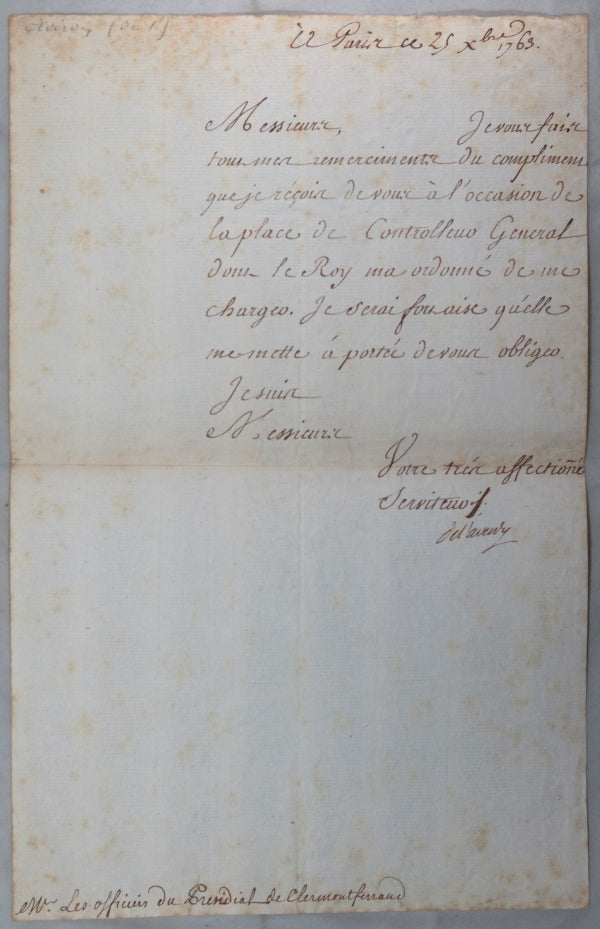 Averdy (de l')
à Paris ce 25 Xbre 1763.
Messieurs, Je vous fais
tous mes remerciments du compliment
que je réçois de vous à l'occasion de
la place de Controlleur General
dont le Roy ma ordonné de me
charger. Je serai fort aise qu'elle
me mette á portée de vous obliger.
Je suis
Messieurs
Votre trés affectioñé
Serviteur
del'averdy
Mrs. Les officiers du Presidial de Clermontferrand